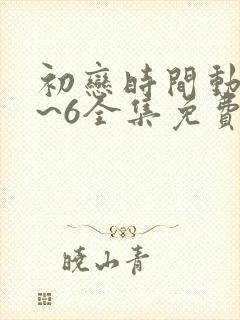 初戀時間動
~6全集免費
曉山青